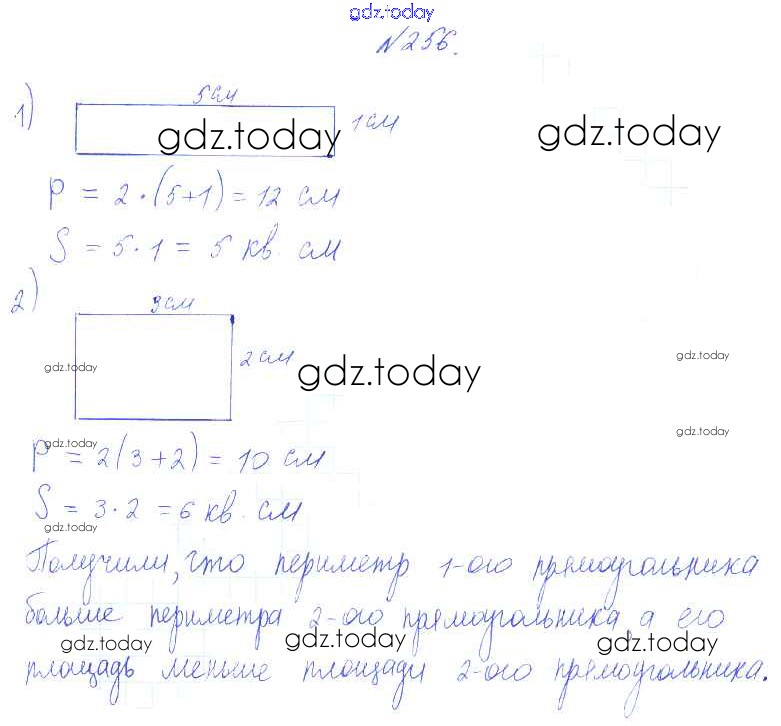 gdz.today
№256.
1)
5см
1см
gdz.today
gdz.today
P = 2·(5+1) = 12 см
S = 5·1 = 5 кв. см
2)
3см
2см
gdz.today
gdz.today
gdz.today
gdz.today
gdz.today
P = 2(3+2) = 10 см
S = 3·2 = 6 кв. см
gdz.today
Получили, что периметр 1-ого прямоугольника
больше периметра 2-ого прямоугольника, а его
gdz.today
gdz.today
gdz.today
площадь меньше площади 2-ого прямоугольника.